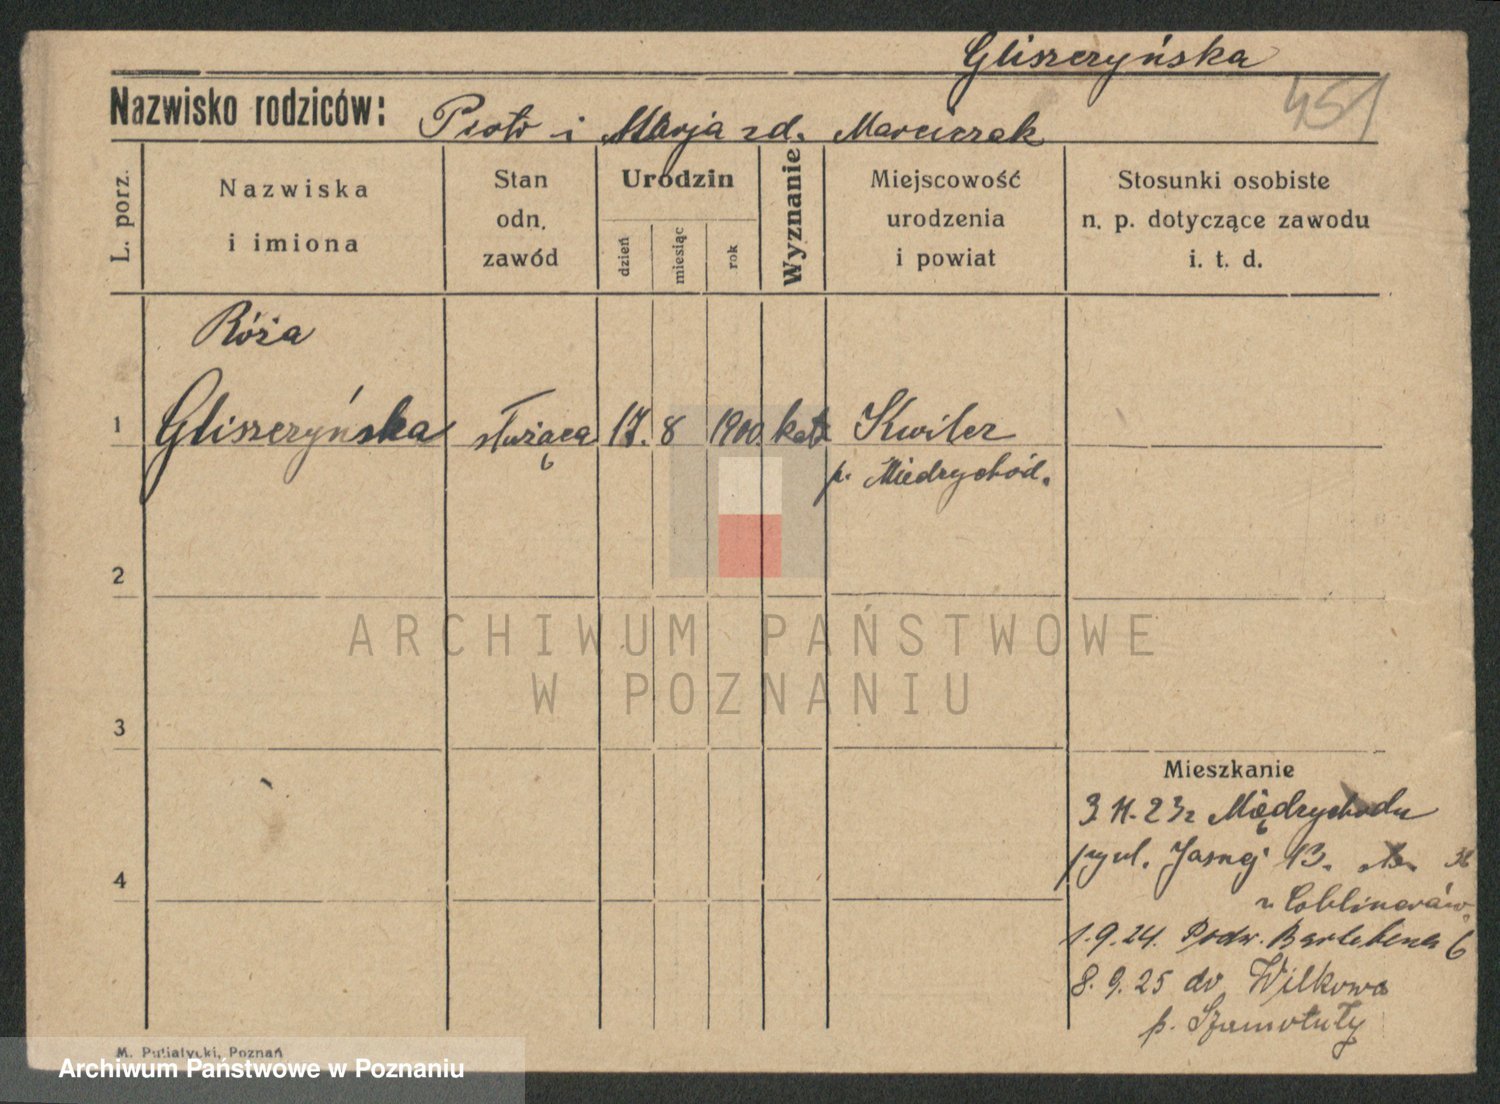 Gliszczyńska
451
Nazwisko rodziców: Piotr i Marja zd. Marciszak
L. porz.
Nazwiska
i imiona
Stan
odn.
zawód
Urodzin
dzień
miesiąc
rok
Wyznanie
Miejscowość
urodzenia
i powiat
Stosunki osobiste
n. p. dotyczące zawodu
i. t. d.
Róża
1 Gliszczyńska służąca 17. 8 1900 kat Kwilcz
p. Miedzychód.
2
ARCHIWUM PAŃSTWOWE
W POZNANIU
3
Mieszkanie
3 11. 23 z Międzychodu
przy ul. Jasnej 13.
4
1. 9. 24. Podw.
8. 9. 25 do Wilkowa
p. Szamotuły
M. Putiatycki, Poznań
Archiwum Państwowe w Poznaniu